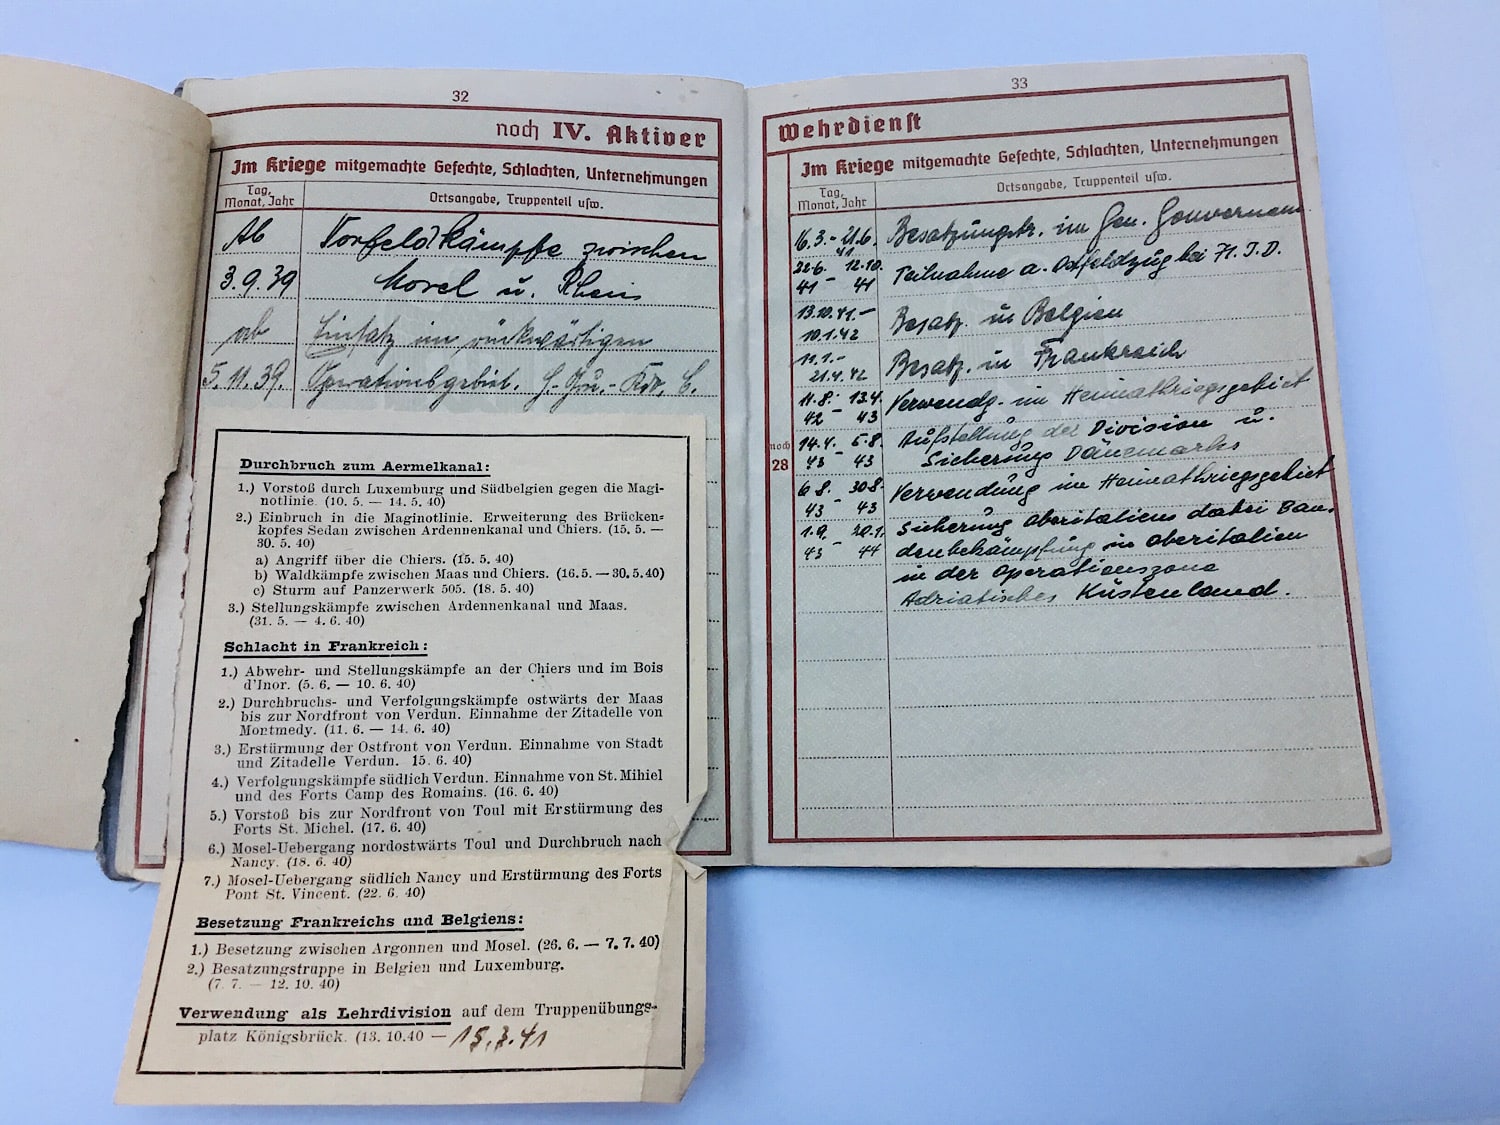 32
noch IV. Aktiver
Im Kriege mitgemachte Gefechte, Schlachten, Unternehmungen
Tag, Monat, Jahr
Ortsangabe, Truppenteil usw.
Ab Vorfeldkämpfe zwischen
3.9.39 Mosel u. Rhein
ab Einsatz im rückwärtigen
5.11.39. Operationsgebiet.
Durchbruch zum Aermelkanal:
1.) Vorstoß durch Luxemburg und Südbelgien gegen die Magi-
notlinie. (10. 5. — 14. 5. 40)
2.) Einbruch in die Maginotlinie. Erweiterung des Brücken-
kopfes Sedan zwischen Ardennenkanal und Chiers. (15. 5. —
30. 5. 40)
a) Angriff über die Chiers. (15. 5. 40)
b) Waldkämpfe zwischen Maas und Chiers. (16. 5. — 30. 5. 40)
c) Sturm auf Panzerwerk 505. (18. 5. 40)
3.) Stellungskämpfe zwischen Ardennenkanal und Maas.
(31. 5. — 4. 6. 40)
Schlacht in Frankreich:
1.) Abwehr- und Stellungskämpfe an der Chiers und im Bois
d'Inor. (5. 6. — 10. 6. 40)
2.) Durchbruchs- und Verfolgungskämpfe ostwärts der Maas
bis zur Nordfront von Verdun. Einnahme der Zitadelle von
Montmedy. (11. 6. — 14. 6. 40)
3.) Erstürmung der Ostfront von Verdun. Einnahme von Stadt
und Zitadelle Verdun. 15. 6. 40)
4.) Verfolgungskämpfe südlich Verdun. Einnahme von St. Mihiel
und des Forts Camp des Romains. (16. 6. 40)
5.) Vorstoß bis zur Nordfront von Toul mit Erstürmung des
Forts St. Michel. (17. 6. 40)
6.) Mosel-Uebergang nordostwärts Toul und Durchbruch nach
Nancy. (18. 6. 40)
7.) Mosel-Uebergang südlich Nancy und Erstürmung des Forts
Pont St. Vincent. (22. 6. 40)
Besetzung Frankreichs und Belgiens:
1.) Besetzung zwischen Argonnen und Mosel. (26. 6. — 7. 7. 40)
2.) Besatzungstruppe in Belgien und Luxemburg.
(7. 7. — 12. 10. 40)
Verwendung als Lehrdivision auf dem Truppenübungs-
platz Königsbrück. (13. 10.40 — 15.3.41
33
Wehrdienst
Im Kriege mitgemachte Gefechte, Schlachten, Unternehmungen
Tag, Monat, Jahr
Ortsangabe, Truppenteil usw.
16.3.-21.6. 41 Besatzungstr. im Gen. Gouvernem.
22.6. 41 - 12.10. 41 Teilnahme a. Ostfeldzug bei 71. I.D.
13.10.41.- 10.1.42 Besatz. in Belgien
11.1.- 21.4.42 Besatz. in Frankreich
11.8. 42 - 13.4. 43 Verwendg. im Heimatkriegsgebiet
noch 28
14.4. 43 - 5.8. 43 Aufstellung der Division u.
Sicherung Dänemarks
6.8. 43 - 30.8. 43 Verwendung im Heimatkriegsgebiet
1.9. 43 - 20.1. 44 Sicherung Oberitaliens dabei Ban-
denbekämpfung in Oberitalien
in der Operationszone
Adriatisches Küstenland.